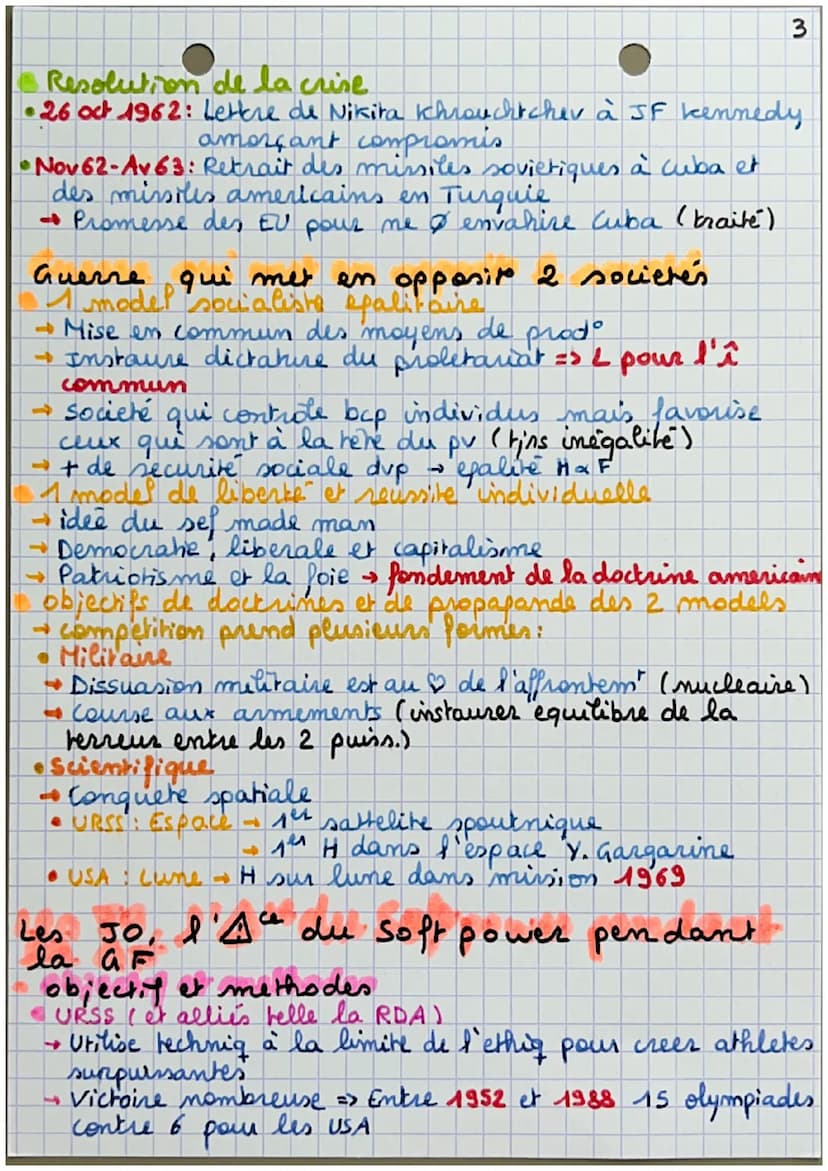 3
Resolution de la crise
• 26 oct 1962 : Lettre de Nikita Khrouchtchev à JF Kennedy
amorçant compromis
• Nov62-Av63 : Retrait des missiles sovietiques à cuba et
des missiles americains en Turquie
→ Promesse des EU pour ne Ø envahire Cuba (traité)
Guerre qui met en opposit° 2 societés
1 model socialiste egalitaire
→ Mise en commun des moyens de prod°
→ Instaure dictature du proletariat => L pour l'î
commun
→ Societé qui controle bcp individus mais favorise
ceux qui sont à la tête du pv (tjns inégalité)
→ + de securité sociale dvp → egalité H & F
1 model de liberté et reussite individuelle
→ ideé du sef made man
→ Democratie, liberale et capitalisme
→ Patriotisme et la foie → fondement de la doctrine americain
objectifs de doctrines et de propagande des 2 models
→ competition prend plusieurs formes :
• Militaire
→ Dissuasion militaire est au ♡ de l'affrontemt (nucleaire)
→ Course aux armements (instaurer equilibre de la
terreur entre les 2 puiss.)
• Scientifique
→ Conquête spatiale
• URSS : Espace → 1er sattelite spoutnique
→ 1er H dans l'espace Y. Gargarine
• USA : Lune → H sur lune dans mission 1969
Les JO, l'⚠ce du soft power pendant
la GF
objectif et methodes
URSS (et alliés telle la RDA)
→ Utilise techniq à la limite de l'ethiq pour creer athletes
surpuissantes
→ Victoire nombreuse => Entre 1952 et 1988 15 olympiades
contre 6 pour les USA